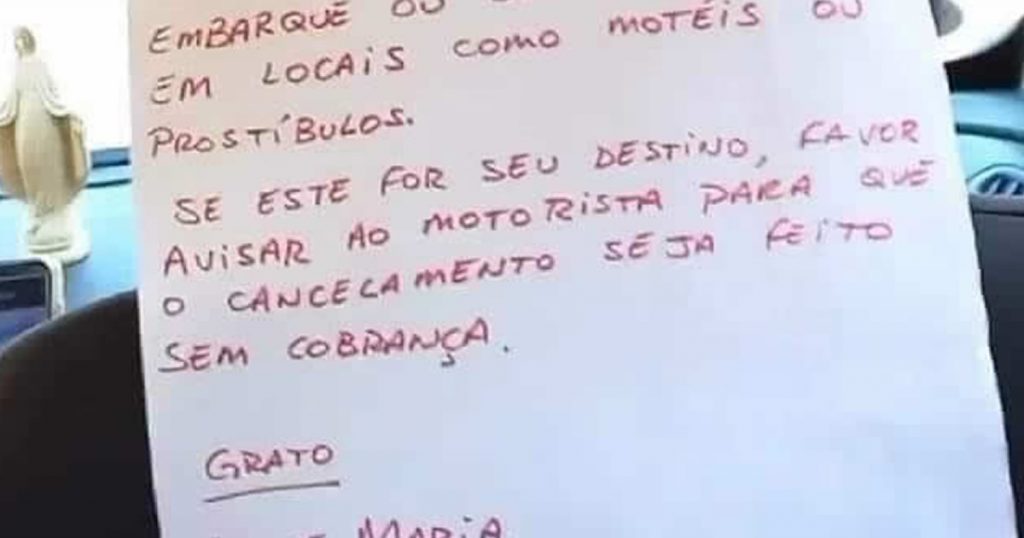 EMBARQUE OU
EM LOCAIS COMO MOTÉIS OU
PROSTÍBULOS.
SE ESTE FOR SEU DESTINO, FAVOR
AVISAR AO MOTORISTA PARA QUE
O CANCELAMENTO SEJA FEITO
SEM COBRANÇA.
GRATO
MARIA